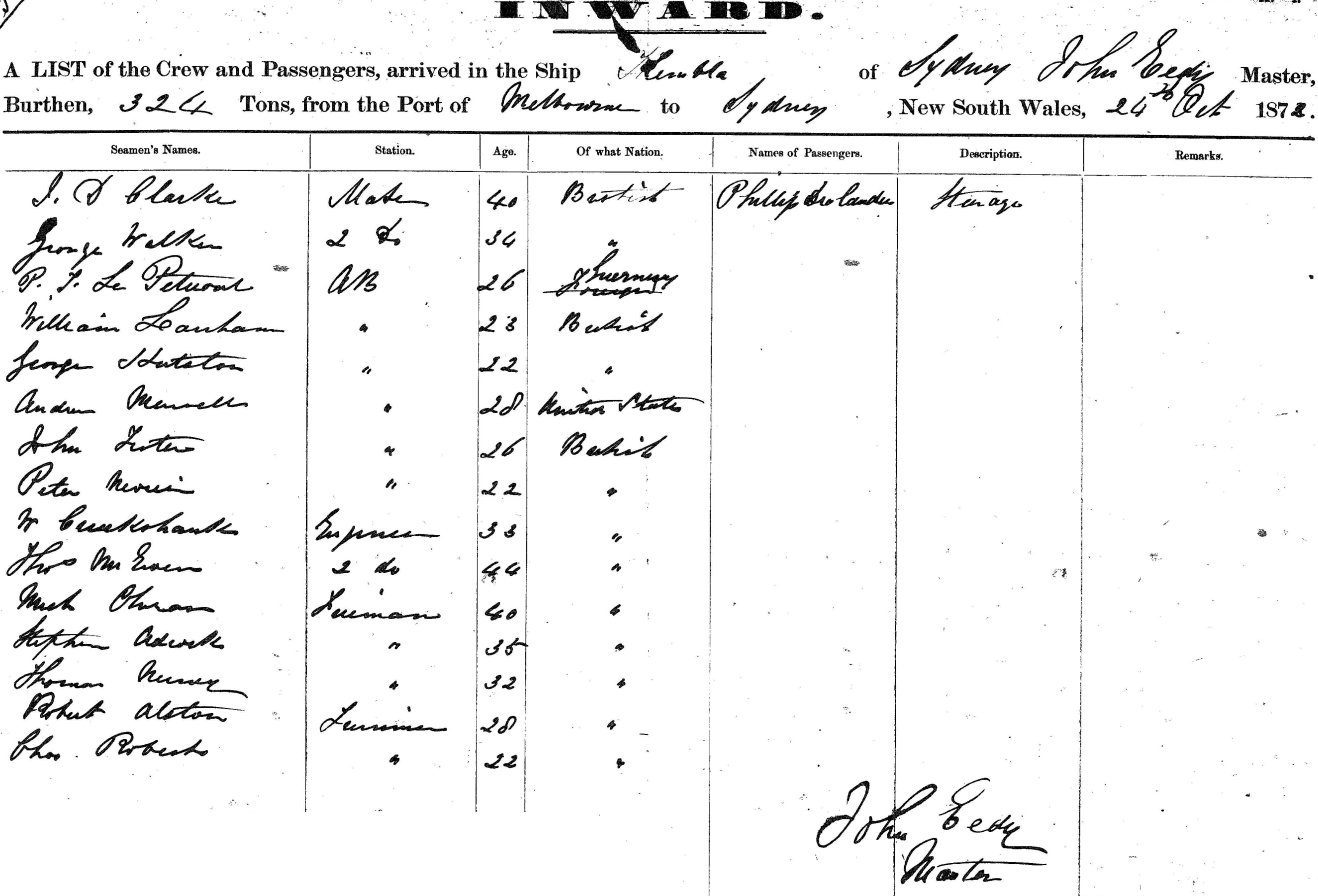 INWARD.
A LIST of the Crew and Passengers, arrived in the Ship Kembla of Sydney John Eedy Master,
Burthen, 324 Tons, from the Port of Melbourne to Sydney, New South Wales, 24th Oct 1872.
Seamen's Names. Station. Age. Of what Nation. Names of Passengers. Description. Remarks.
J. D Clarke Mate 40 British Phillip Storage
George Walker 2 Do 34 "
P. F. Le AB 26 Guernsey Foreign
William Lanham " 23 British
George " 22 "
Andrew " 28 United States
John " 26 British
Peter " 22 "
W Cruikshank Engineer 33 "
Thos McEwen 2 do 44 "
Mich 40 "
Stephen " 35 "
Thomas " 32 "
Robert Alston 28 "
Chas. Roberts " 22 "
John Eedy
Master